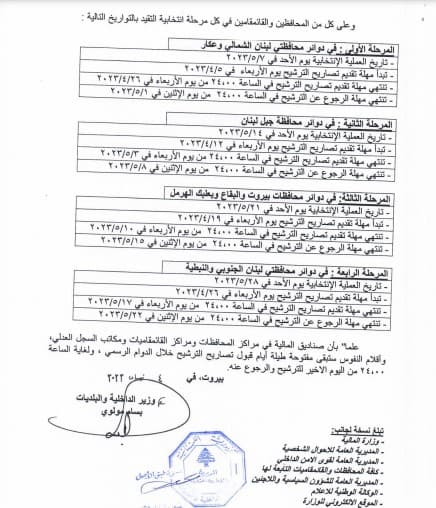 وعلى كل من المحافظين والقائمقامين في كل مرحلة انتخابية التقيد بالتواريخ التالية :
المرحلة الأولى: في دوائر محافظتي لبنان الشمالي وعكار
- تاريخ العملية الإنتخابية يوم الأحد في ٢٠٢٣/٥/٧
- تبدأ مهلة تقديم تصاريح الترشيح يوم الأربعاء في ٢٠٢٣/٤/٥
- تنتهي مهلة تقديم تصاريح الترشيح في الساعة ٢٤،٠٠ من يوم الأربعاء في ٢٠٢٣/٤/٢٦
- تنتهي مهلة الرجوع عن الترشيح في الساعة ٢٤،٠٠ من يوم الإثنين في ٢٠٢٣/٥/١
المرحلة الثانية: في دوائر محافظة جبل لبنان
- تاريخ العملية الإنتخابية يوم الأحد في ٢٠٢٣/٥/١٤
- تبدأ مهلة تقديم تصاريح الترشيح يوم الأربعاء في ٢٠٢٣/٤/١٢
- تنتهي مهلة تقديم تصاريح الترشيح في الساعة ٢٤،٠٠ من يوم الأربعاء في ٢٠٢٣/٥/٣
- تنتهي مهلة الرجوع عن الترشيح في الساعة ٢٤،٠٠ من يوم الإثنين في ٢٠٢٣/٥/٨
المرحلة الثالثة: في دوائر محافظات بيروت والبقاع وبعلبك الهرمل
- تاريخ العملية الإنتخابية يوم الأحد في ٢٠٢٣/٥/٢١
- تبدأ مهلة تقديم تصاريح الترشيح يوم الأربعاء في ٢٠٢٣/٤/١٩
- تنتهي مهلة تقديم تصاريح الترشيح في الساعة ٢٤،٠٠ من يوم الأربعاء في ٢٠٢٣/٥/١٠
- تنتهي مهلة الرجوع عن الترشيح في الساعة ٢٤،٠٠ من يوم الإثنين في ٢٠٢٣/٥/١٥
المرحلة الرابعة: في دوائر محافظتي لبنان الجنوبي والنبطية
- تاريخ العملية الإنتخابية يوم الأحد في ٢٠٢٣/٥/٢٨
- تبدأ مهلة تقديم تصاريح الترشيح يوم الأربعاء في ٢٠٢٣/٤/٢٦
- تنتهي مهلة تقديم تصاريح الترشيح في الساعة ٢٤،٠٠ من يوم الأربعاء في ٢٠٢٣/٥/١٧
- تنتهي مهلة الرجوع عن الترشيح في الساعة ٢٤،٠٠ من يوم الإثنين في ٢٠٢٣/٥/٢٢
علما" بأن صناديق المالية في مراكز المحافظات ومراكز القائمقاميات ومكاتب السجل العدلي،
وأقلام النفوس ستبقى مفتوحة طيلة أيام قبول تصاريح الترشيح خلال الدوام الرسمي ، ولغاية الساعة
٢٤،٠٠ من اليوم الاخير للترشيح والرجوع عنه.
بيروت، في ٤
وزير الداخلية والبلديات
بسام مولوي
تبلغ نسخة لجانب:
- وزارة المالية
- المديرية العامة للاحوال الشخصية
- المديرية العامة لقوى الامن الداخلي
- كافة المحافظات والقائمقاميات التابعة لها
- المديرية العامة للشؤون السياسية واللاجئين
- الوكالة الوطنية للاعلام
- الموقع الالكتروني للوزارة